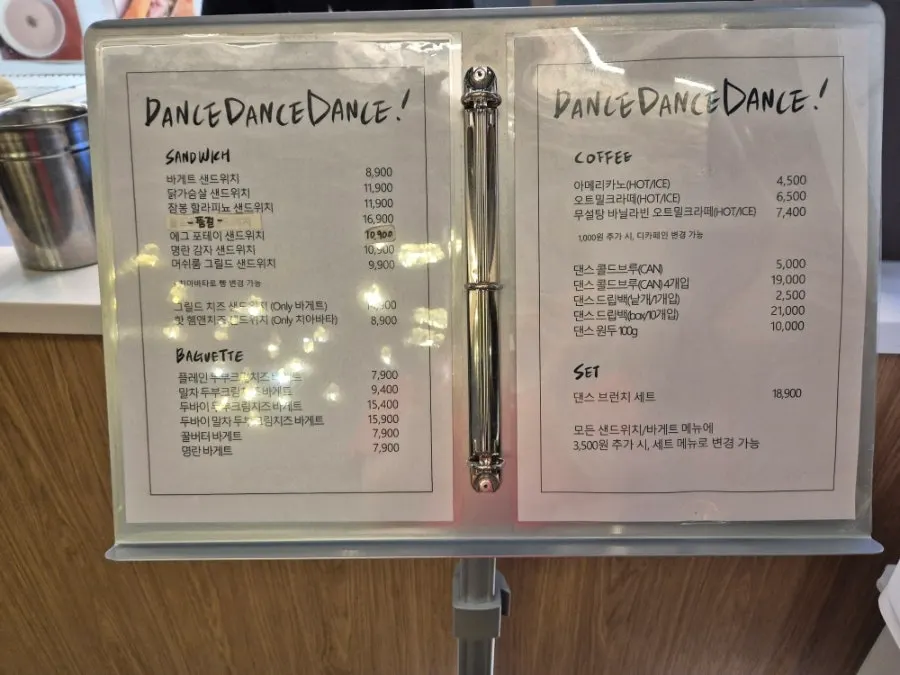 DANCEDANCEDANCE!
SANDWICH
바게트 샌드위치 8,900
닭가슴살 샌드위치 11,900
잠봉 할라피뇨 샌드위치 11,900
-품절- 16,900
에그 포테이 샌드위치 10,900
명란 감자 샌드위치 10,900
머쉬룸 그릴드 샌드위치 9,900
치아바타로 빵 변경 가능
그릴드 치즈 샌드위치 (Only 바게트)
핫 햄앤치즈 샌드위치 (Only 치아바타) 8,900
BAGUETTE
플레인 두부크림치즈 바게트 7,900
말차 두부크림치즈 바게트 9,400
두바이 두부크림치즈 바게트 15,400
두바이 말차 두부크림치즈 바게트 15,900
꿀버터 바게트 7,900
명란 바게트 7,900
DANCEDANCEDANCE!
COFFEE
아메리카노(HOT/ICE) 4,500
오트밀크라떼(HOT/ICE) 6,500
무설탕 바닐라빈 오트밀크라떼(HOT/ICE) 7,400
1,000원 추가 시, 디카페인 변경 가능
댄스 콜드브루(CAN) 5,000
댄스 콜드브루(CAN) 4개입 19,000
댄스 드립백(낱개/1개입) 2,500
댄스 드립백(box/10개입) 21,000
댄스 원두 100g 10,000
SET
댄스 브런치 세트 18,900
모든 샌드위치/바게트 메뉴에
3,500원 추가 시, 세트 메뉴로 변경 가능